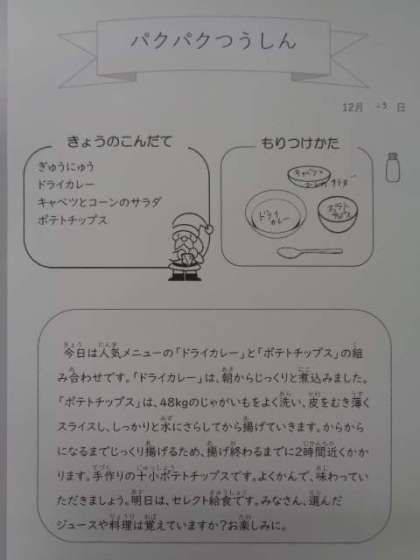 パクパクつうしん
12月 日
きょうのこんだて
ぎゅうにゅう
ドライカレー
キャベツとコーンのサラダ
ポテトチップス
もりつけかた
キャベツ
サラダ
ドライ
カレー
ポテト
チップス
今日は人気メニューの「ドライカレー」と「ポテトチップス」の組
み合わせです。「ドライカレー」は、朝からじっくりと煮込みました。
「ポテトチップス」は、48kgのじゃがいもをよく洗い、皮をむき薄く
スライスし、しっかりと水にさらしてから揚げていきます。からから
になるまでじっくり揚げるため、揚げ終わるまでに2時間近くかか
ります。手作りの十小ポテトチップスです。よくかんで、味わってい
ただきましょう。明日は、セレクト給食です。みなさん、選んだ
ジュースや料理は覚えていますか？お楽しみに。